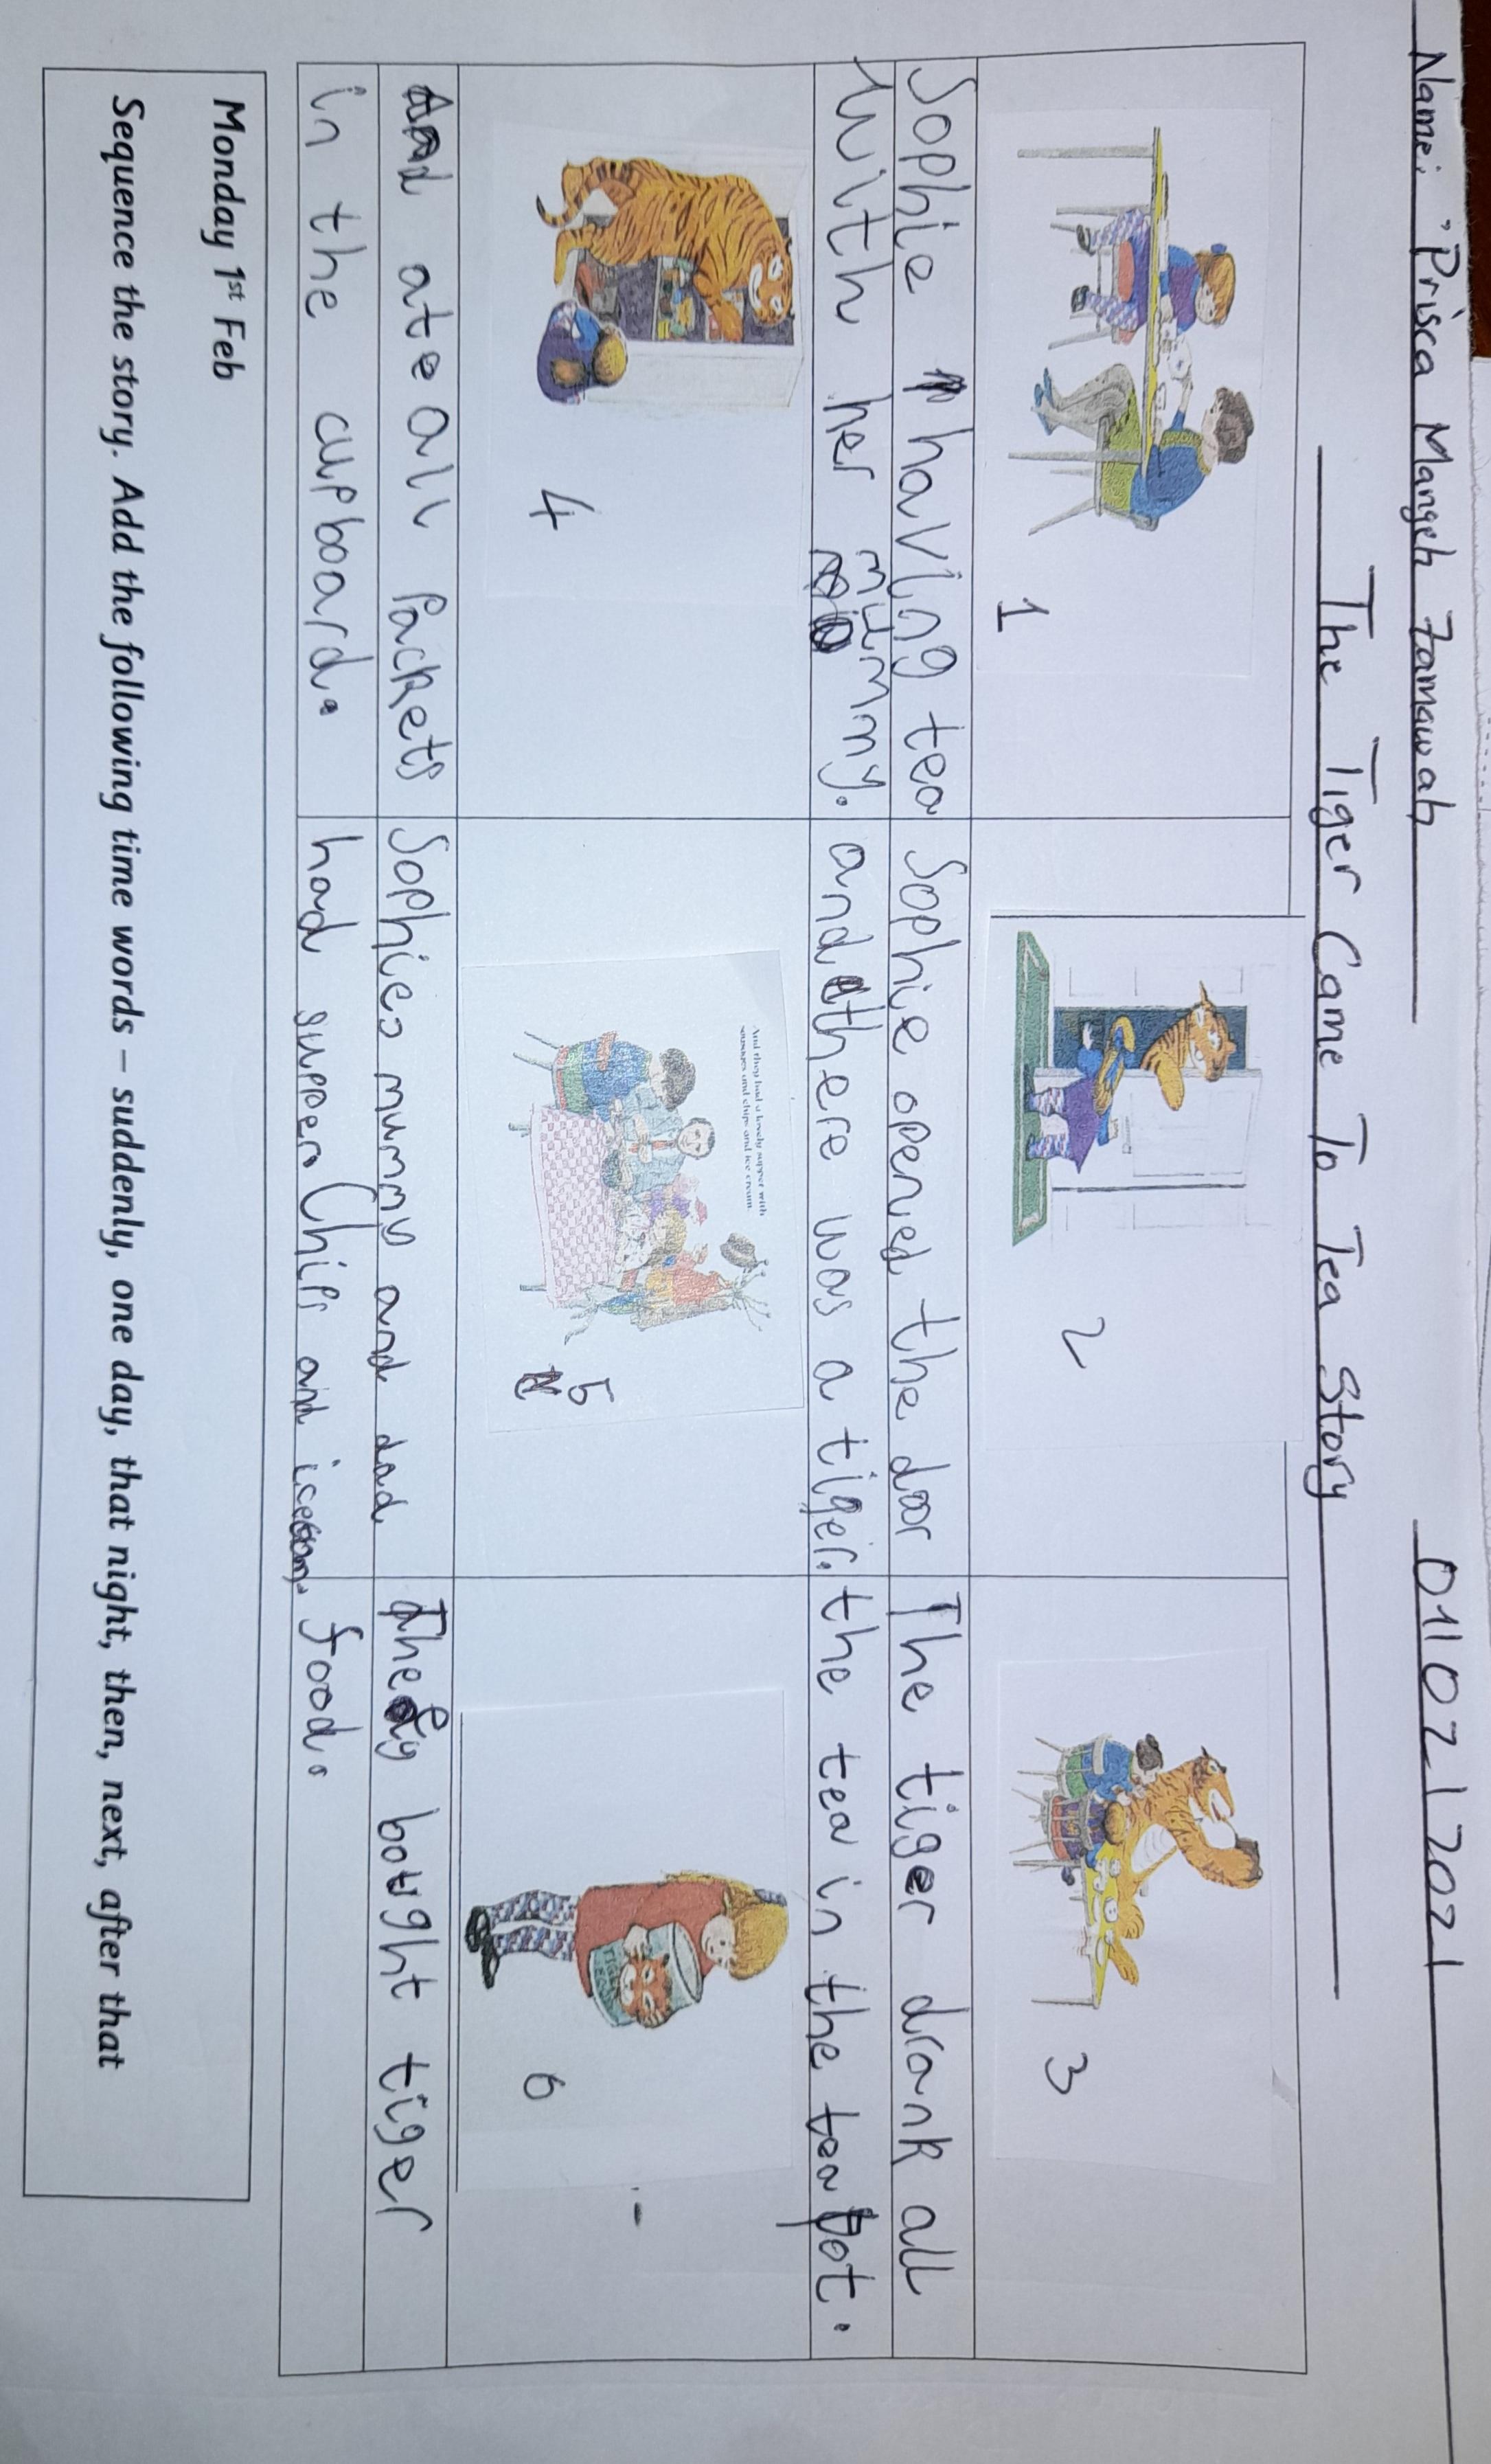 Name: Prisca Mangeh Zamawah
01/02/2021
The Tiger Came To Tea Story
1
2
3
Sophie having tea
with her mummy.
Sophie opened the door
and there was a tiger.
The tiger drank all
the tea in the teapot.
4
And they had a lovely supper with
sausages and chips and ice cream.
5
6
And ate all Packets
in the cupboard.
Sophies mummy and dad
had supper Chips and
They bought tiger
food.
Monday 1st Feb
Sequence the story. Add the following time words – suddenly, one day, that night, then, next, after that